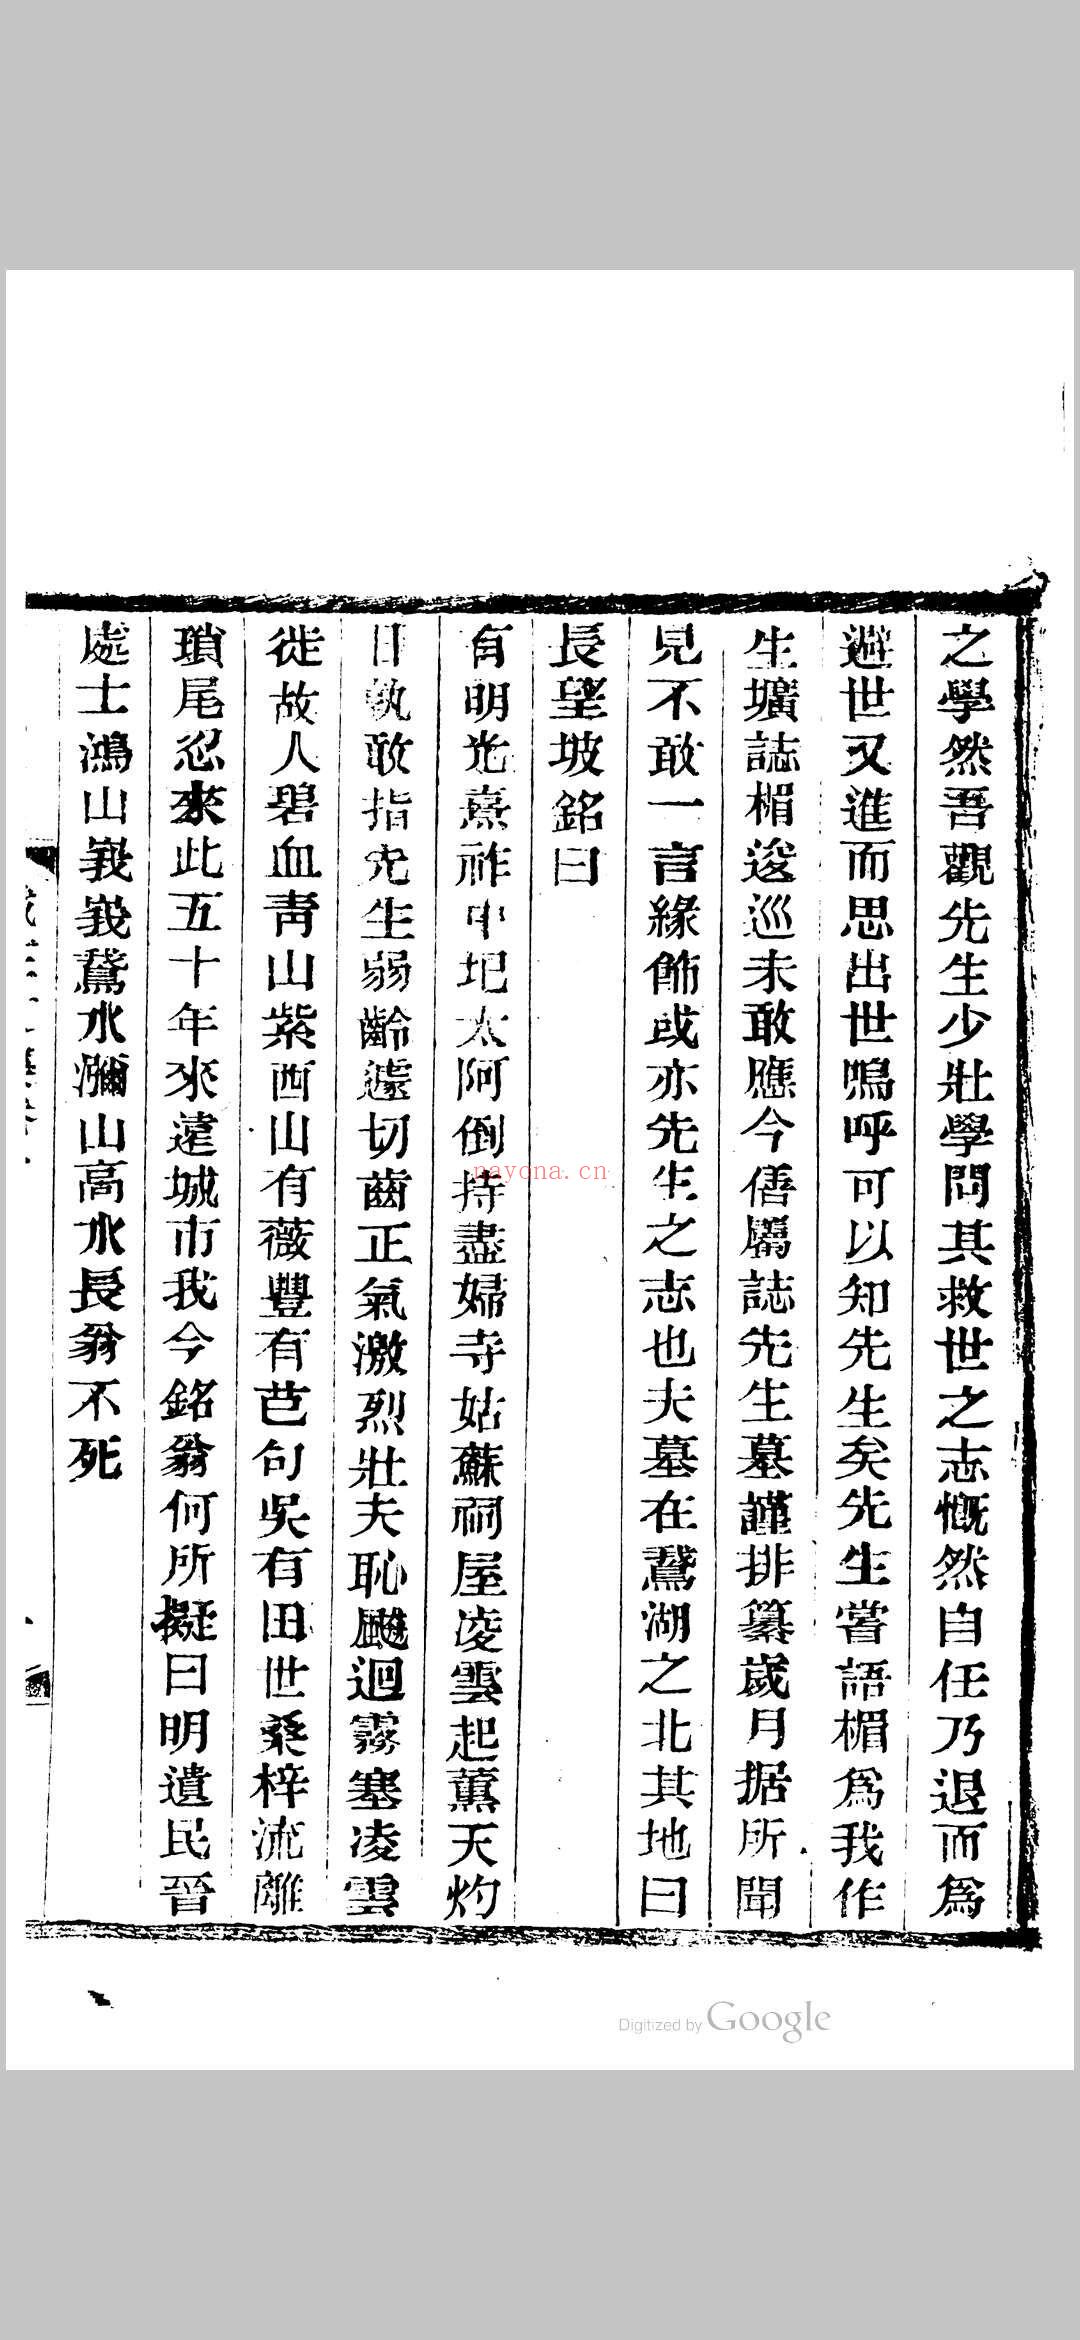 之學然吾觀先生少壯學問其救世之志慨然自任乃退而爲
避世又進而思出世嗚呼可以知先生矣先生嘗語楣爲我作
生壙誌楣逡巡未敢應今僑屬誌先生墓謹排纂歲月据所聞
見不敢一言緣飾或亦先生之志也夫墓在鵞湖之北其地曰
長望坡銘曰
有明光熹祚中圮太阿倒持盡婦寺姑蘇祠屋凌雲起薰天灼
日孰敢指先生弱齡遽切齒正氣激烈壯夫恥颶迴霧塞凌雲
徙故人碧血靑山紫西山有薇豐有芑句吳有田世桑梓流離
瑣尾忍來此五十年來違城市我今銘翁何所擬曰明遺民晉
處士鴻山峩峩鵞水瀰山高水長翁不死
nayona.cn
Digitized by Google